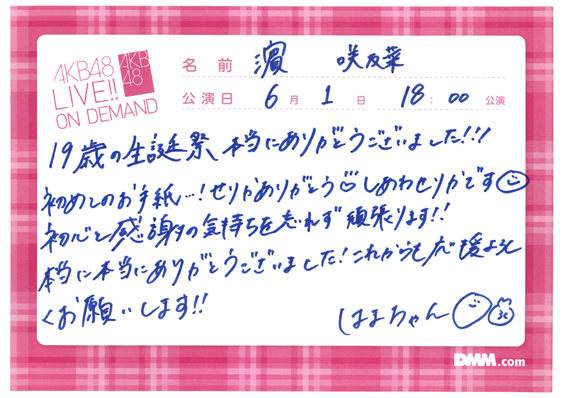 AKB48
LIVE!!
ON DEMAND
AKB
48
名前 濵 咲友菜
公演日 6月1日 18:00 公演
19歳の生誕祭 本当にありがとうございました!!!
初めてのお手紙…!せりかありがとう♡しあわせりかです
初心と感謝の気持ちを忘れず頑張ります!!
本当に本当にありがとうございました!これからも応援よろし
くお願いします!!
はまちゃん
DMM.com